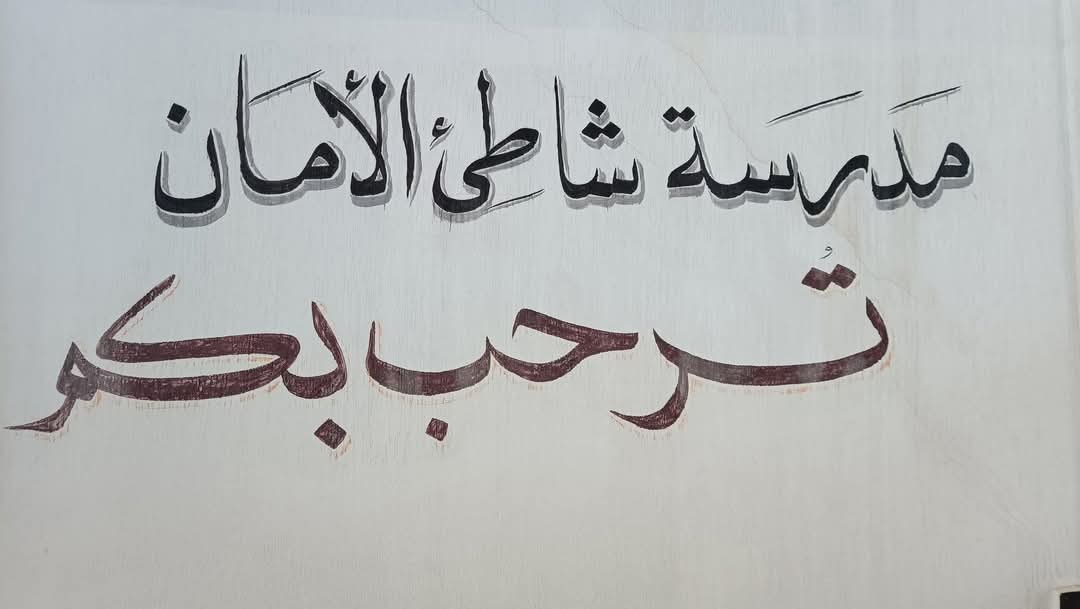 مَدرَسة شاطئ الأمَان
تُرحب بكم